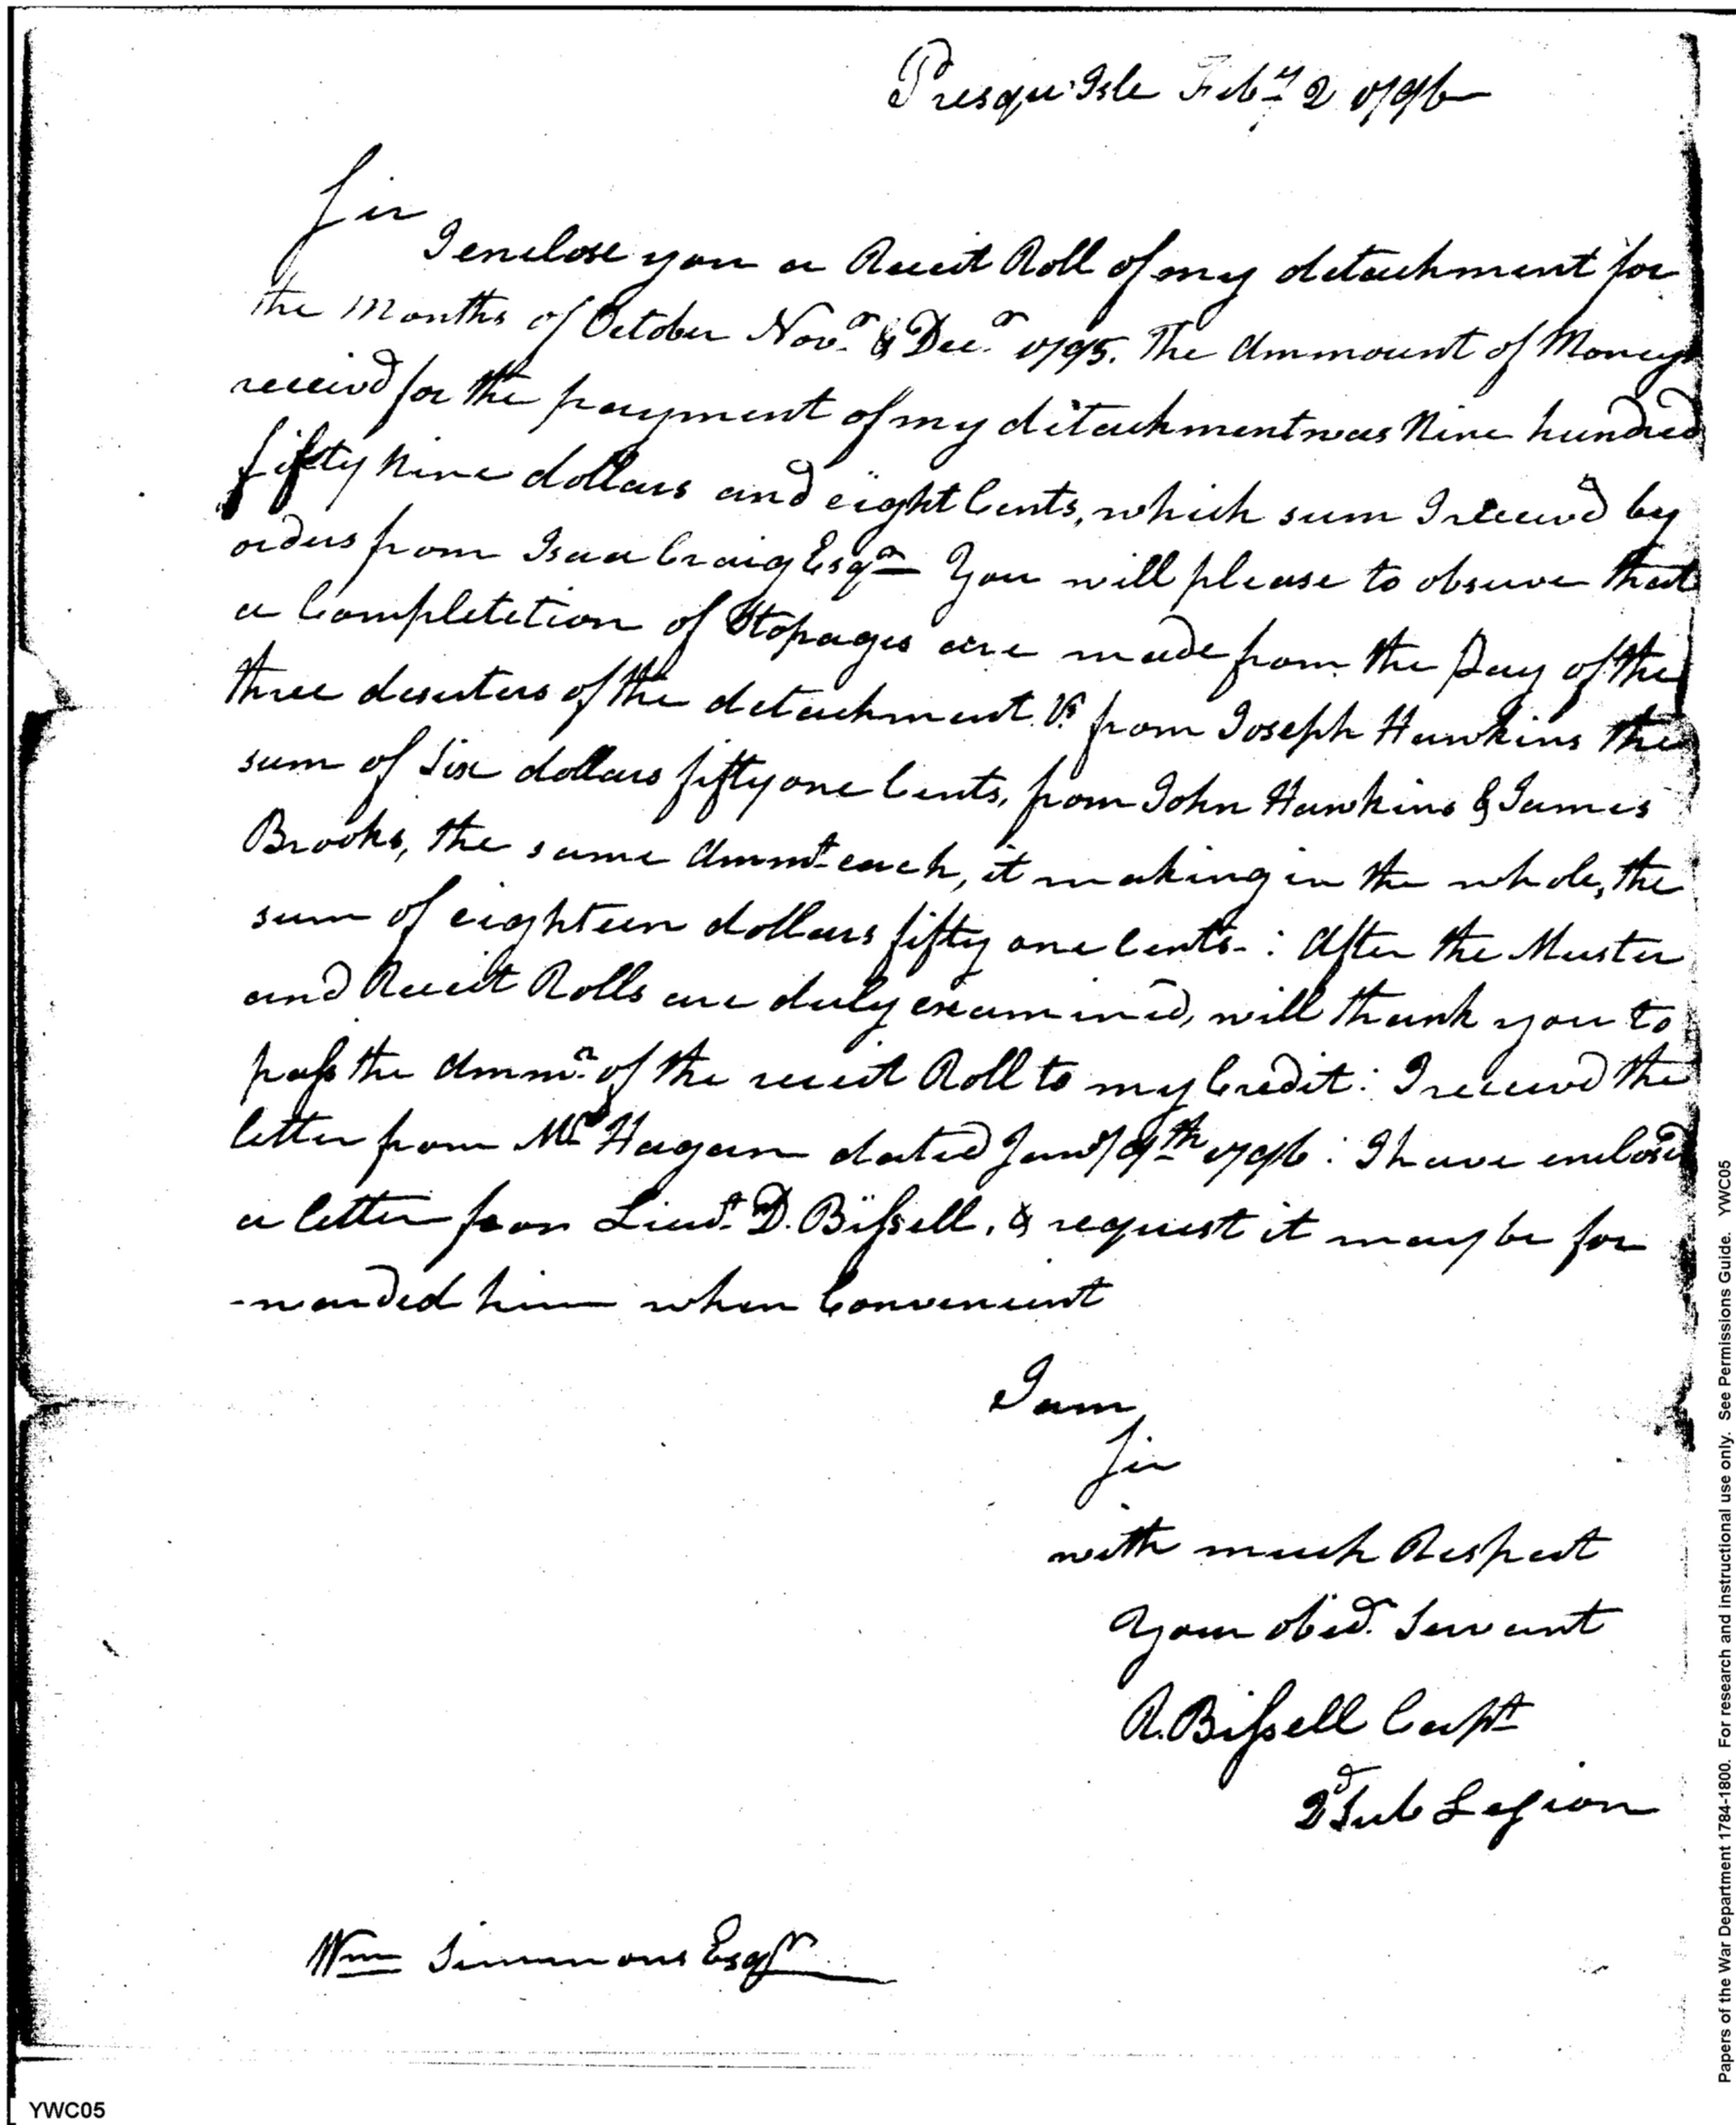 Presqu'Isle Feby 2 1796
Sir
I enclose you a Receit Roll of my detachment for
the Months of October Novr & Decr 1795. The Ammount of Money
receivd for the payment of my ditachment was Nine hundred
fifty Nine dollars and eight Cents, which sum I receivd by
orders from Isaa Craig Esqr You will please to observe that
a Completetion of Stopages are made from the Pay of the
three deserters of the detachment Vs from Joseph Hawkins the
sum of Six dollars fifty one Cents, from John Hawkins & James
Brooks, the same Ammt each, it making in the whole, the
sum of eighteen dollars fifty one Cents: After the Muster
and Receit Rolls are duly examined, will thank you to
pass the Amm of the receit Roll to my Credit: I receivd the
letter from Mr Hagan dated Jany 9th 1796: I have enclosed
a letter for Lieut. D. Bissell, & request it may be for
-warded him when Convenient
I am
Sir
with much Respect
Your obed. Servant
R. Bissell Capt
2d Sub Legion
Wm Simmons Esqr
Papers of the War Department 1784-1800. For research and instructional use only. See Permissions Guide. YWC05
YWC05